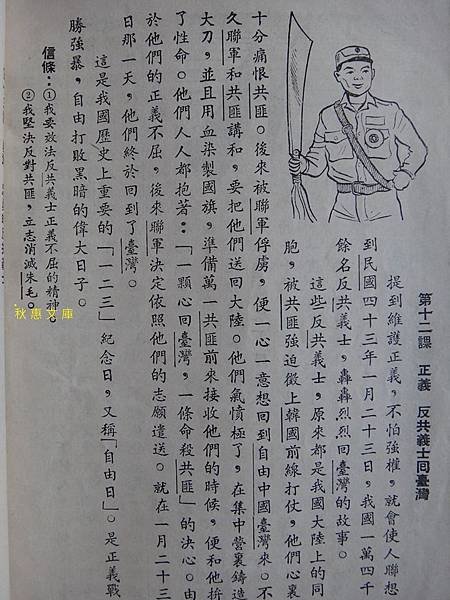 第十二課　正義　反共義士回臺灣
提到維護正義，不怕強權，就會使人聯想
到民國四十三年一月二十三日，我國一萬四千
餘名反共義士，轟轟烈烈回臺灣的故事。
這些反共義士，原來都是我國大陸上的同
胞，被共匪強迫徵上韓國前線打仗，他們心裏
十分痛恨共匪。後來被聯軍俘虜，便一心一意想回到自由中國臺灣來。不
久聯軍和共匪講和，要把他們送回大陸。他們氣憤極了，在集中營裏鑄造
大刀，並且用血染製國旗，準備萬一共匪前來接收他們的時候，便和他拚
了性命。他們人人都抱著：「一顆心回臺灣，一條命殺共匪」的決心。由
於他們的正義不屈，後來聯軍決定依照他們的志願遣送。就在一月二十三
日那一天，他們終於回到了臺灣。
這是我國歷史上重要的「一二三」紀念日，又稱「自由日」。是正義戰
勝強暴，自由打敗黑暗的偉大日子。
信條：①我要效法反共義士正義不屈的精神。
②我堅決反對共匪，立志消滅朱毛。
秋惠文庫